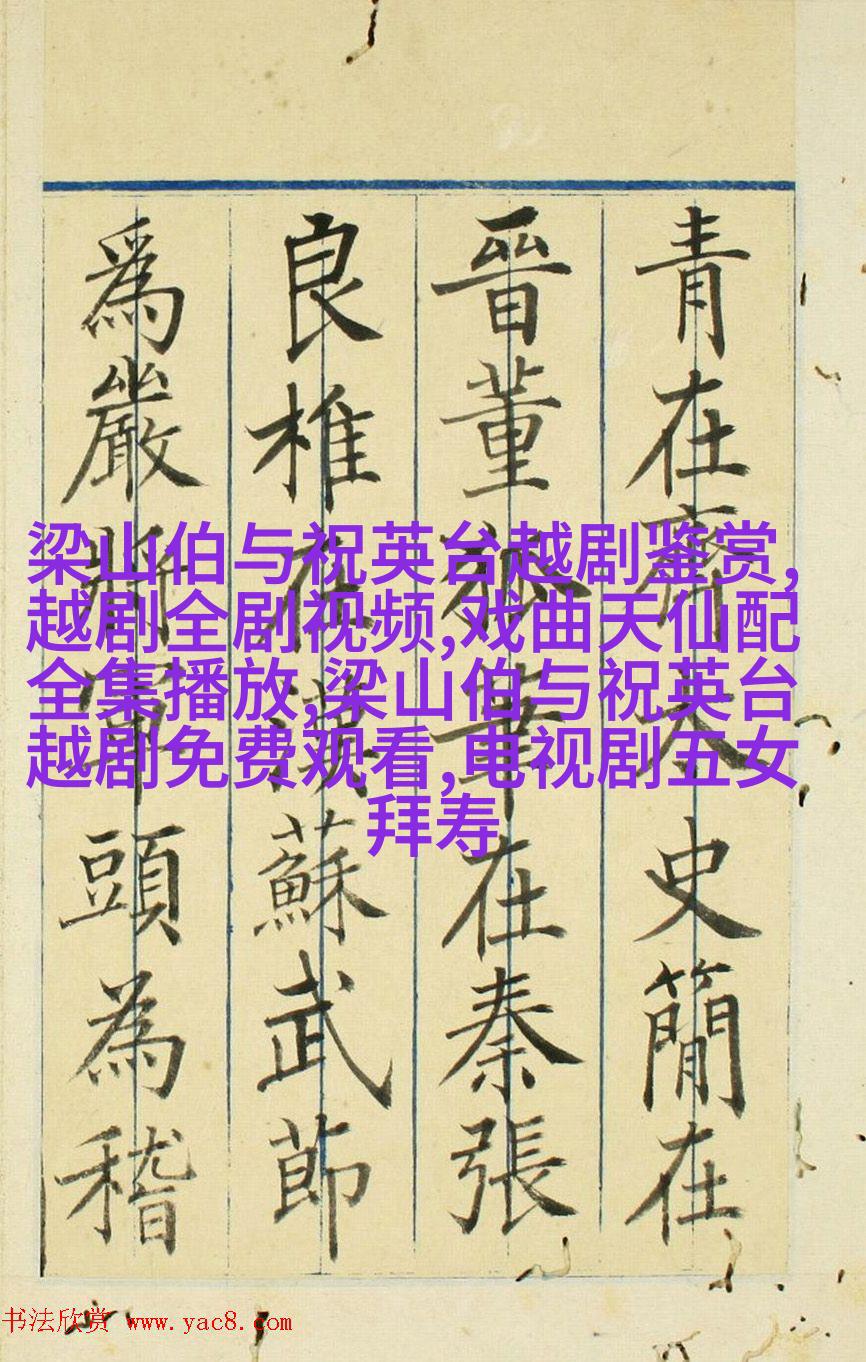 青在齊太史簡在
晉董狐筆在秦張
良椎在漢蘇武節
爲嚴將軍頭為稽
梁山伯与祝英台越剧鉴赏,
越剧全剧视频,戏曲天仙配
全集播放,梁山伯与祝英台
越剧免费观看,电视剧五女
拜寿
书法欣赏 www.yac8.com